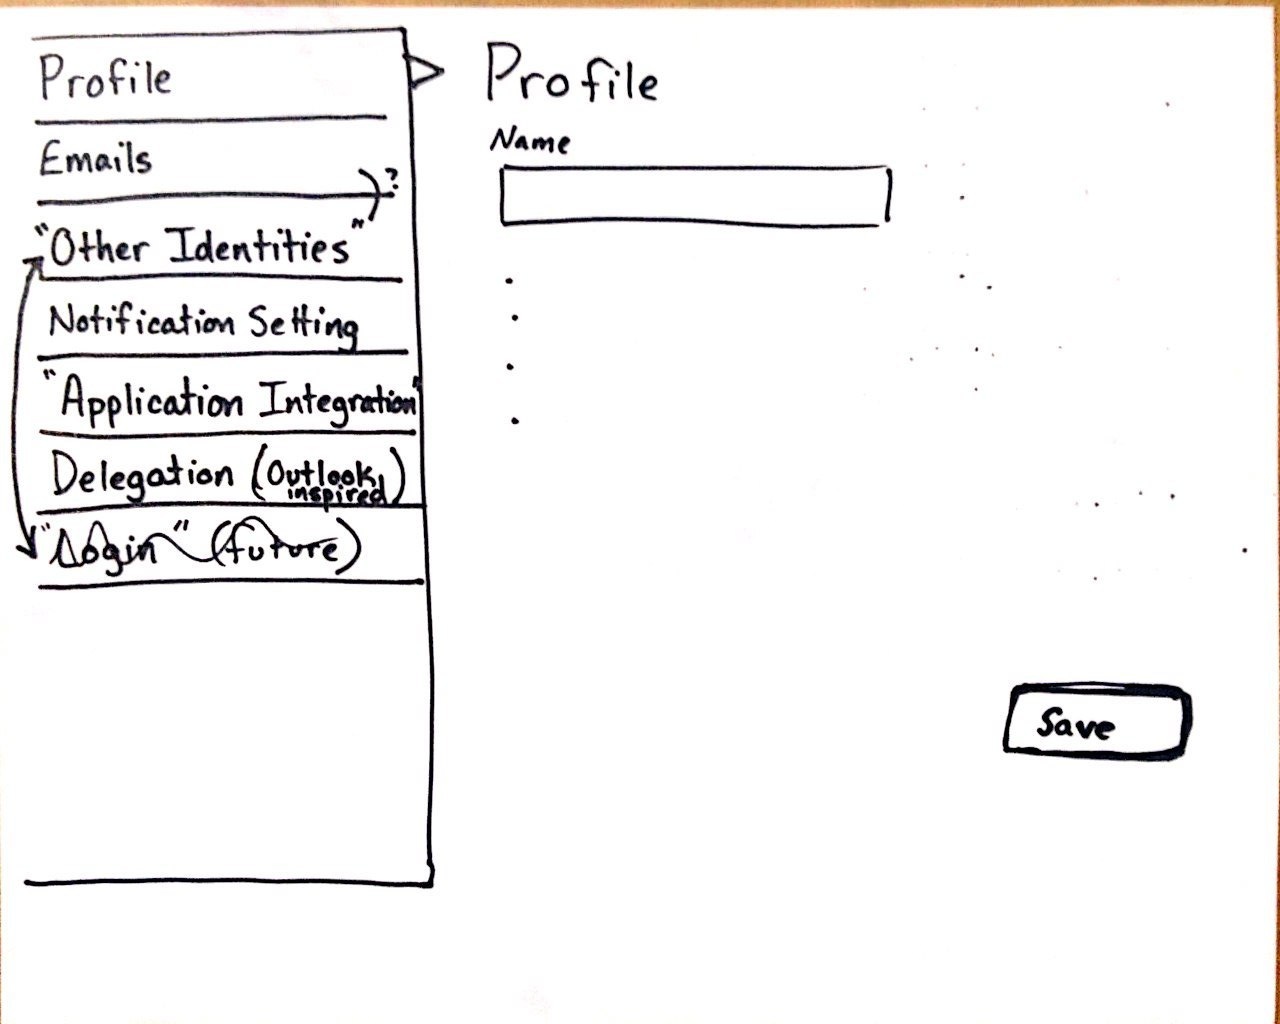 Profile
Emails
?
"Other Identities"
Notification Setting
"Application Integration"
Delegation (Outlook inspired)
"Login" (future)
Profile
Name
Save